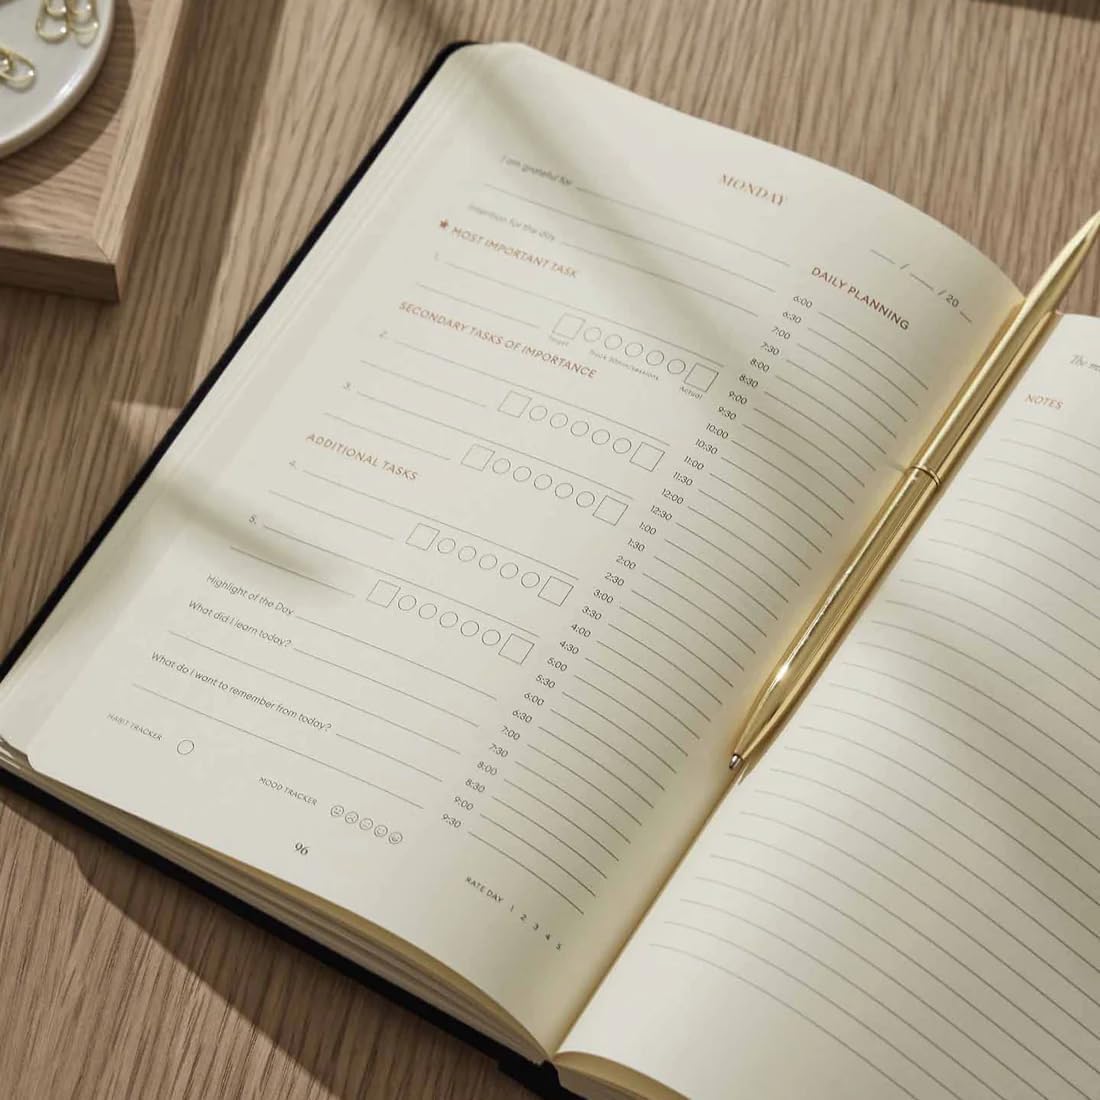 MONDAY
I am grateful for
/ / 20
Intention for the day
★ MOST IMPORTANT TASK
1.
Target
Track 30min/sessions
Actual
SECONDARY TASKS OF IMPORTANCE
2.
3.
ADDITIONAL TASKS
4.
5.
Highlight of the Day
What did I learn today?
What do I want to remember from today?
HABIT TRACKER
MOOD TRACKER
96
DAILY PLANNING
6:00
6:30
7:00
7:30
8:00
8:30
9:00
9:30
10:00
10:30
11:00
11:30
12:00
12:30
1:00
1:30
2:00
2:30
3:00
3:30
4:00
4:30
5:00
5:30
6:00
6:30
7:00
7:30
8:00
8:30
9:00
9:30
RATE DAY 1 2 3 4 5
The
NOTES